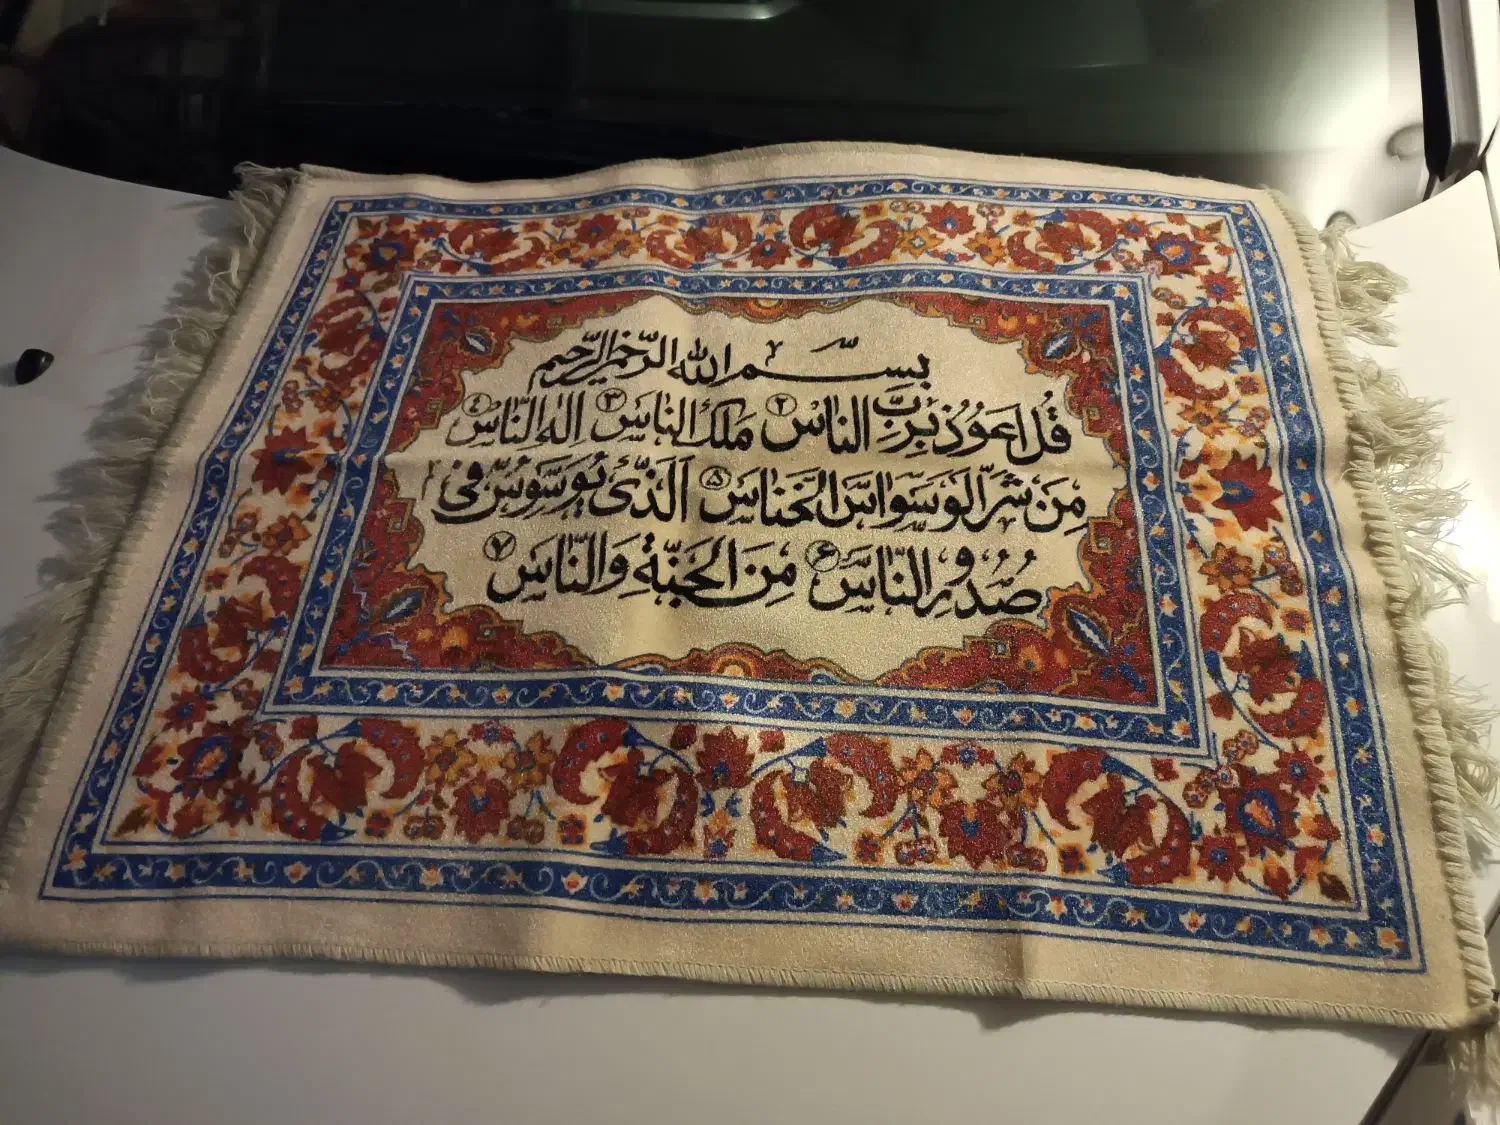 بِسْمِ اللهِ الرَّحْمنِ الرَّحِيمِ
قُلْ اَعُوذُ بِرَبِّ النّاسِ ۲ مَلِكِ النّاسِ ۳ اِلهِ النّاسِ ٤
مِنْ شَرِّ الْوَسْوَاسِ الْخَنّاسِ ۵ اَلَّذِى يُوَسْوِسُ فِى
صُدُورِ النّاسِ ۶ مِنَ الْجِنَّةِ وَالنّاسِ ۷